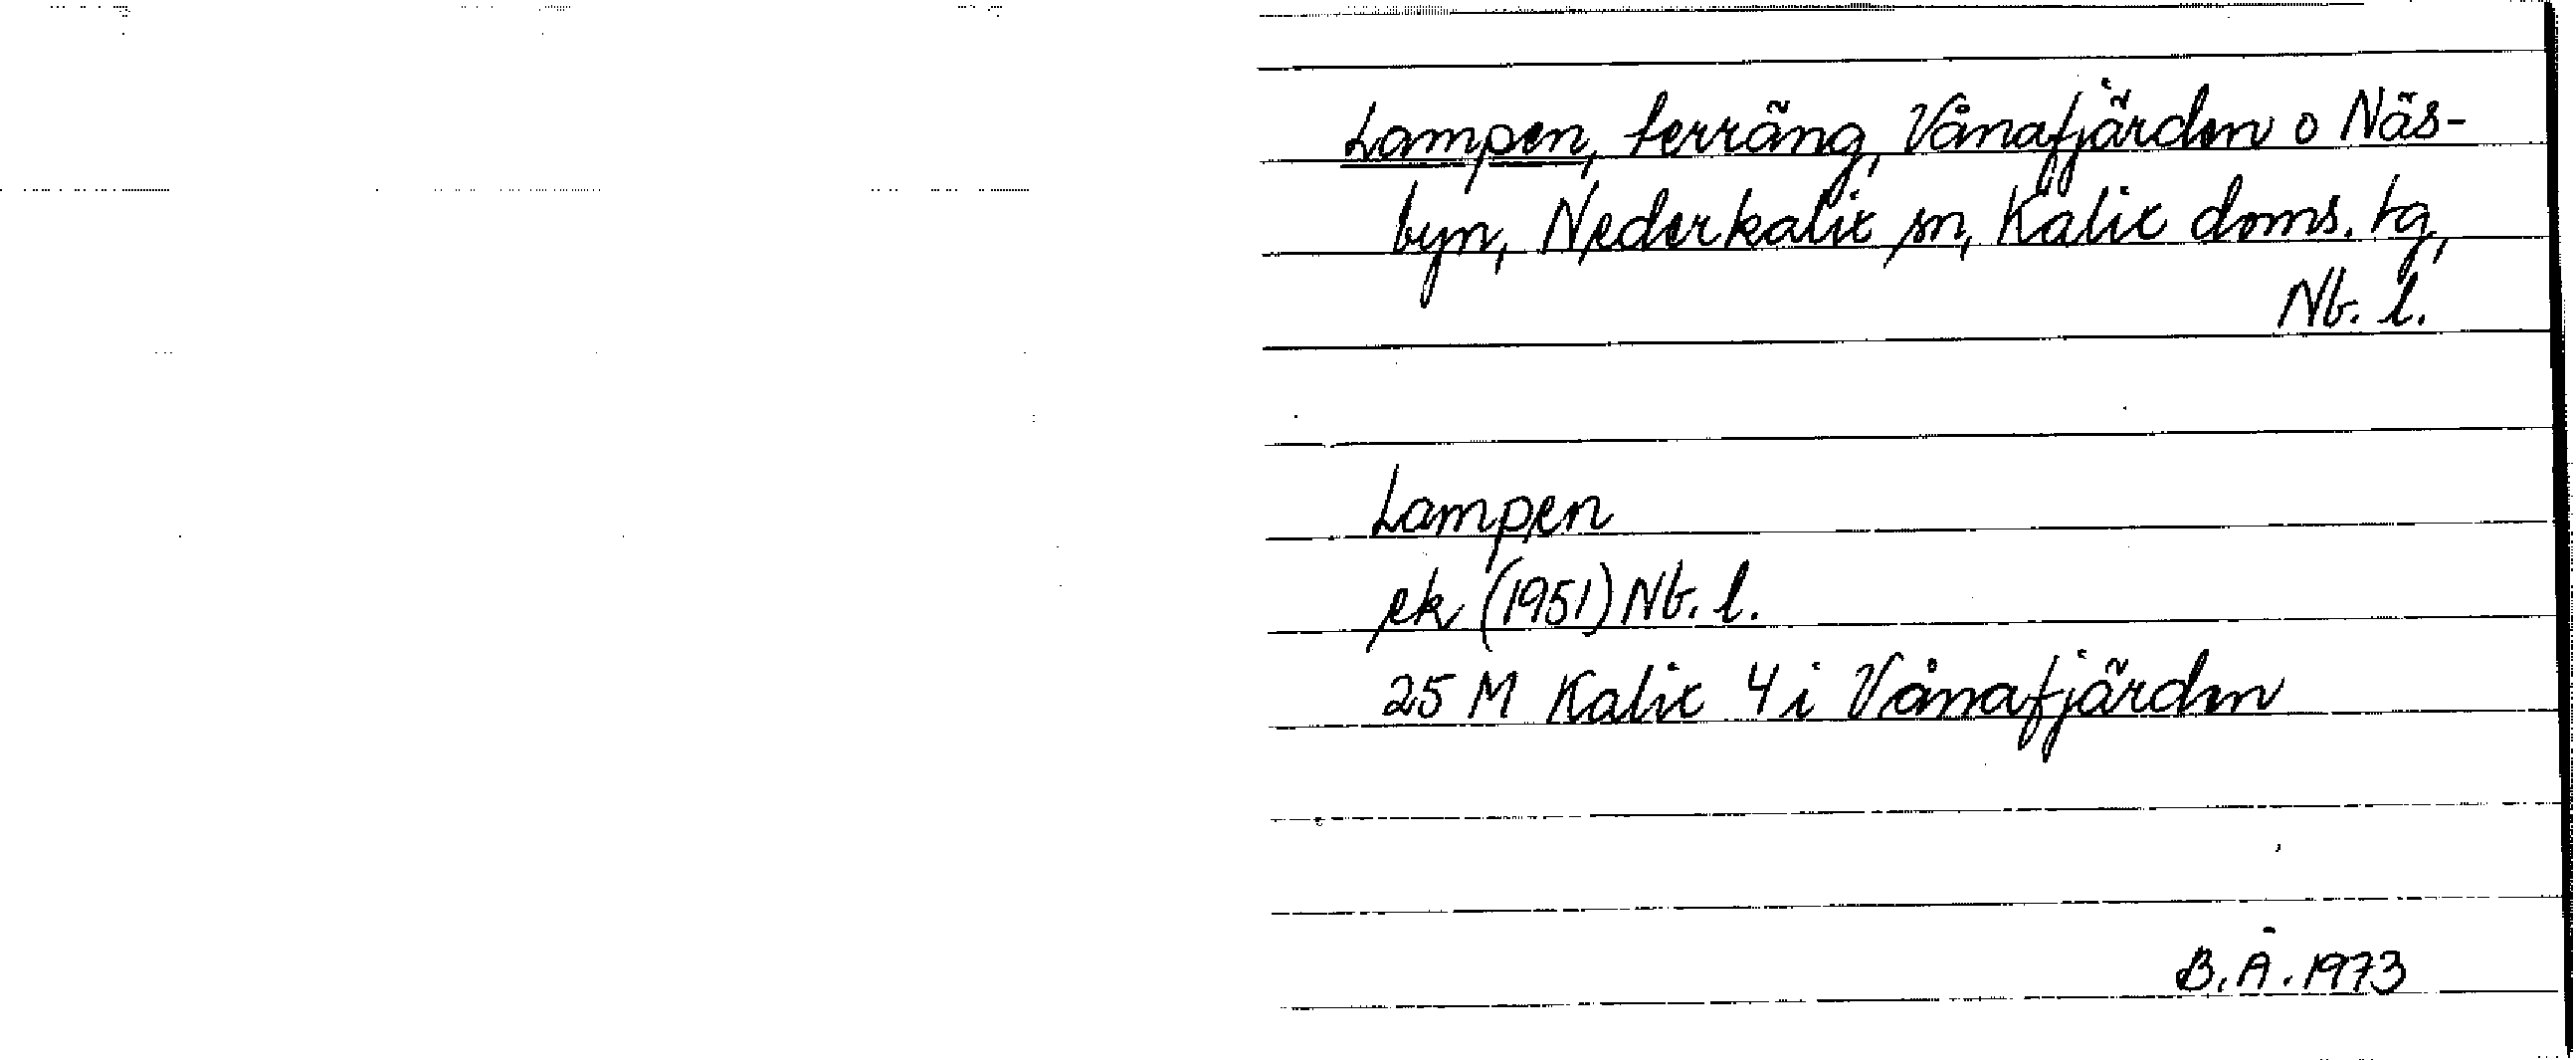 Lampen, terräng, Vånafjärden o Näs-
byn, Nederkalix sn, Kalix doms. tg,
Nb. l.
Lampen
ek (1951) Nb. l.
25 M Kalix 4 i Vånafjärden
B.Å. 1973